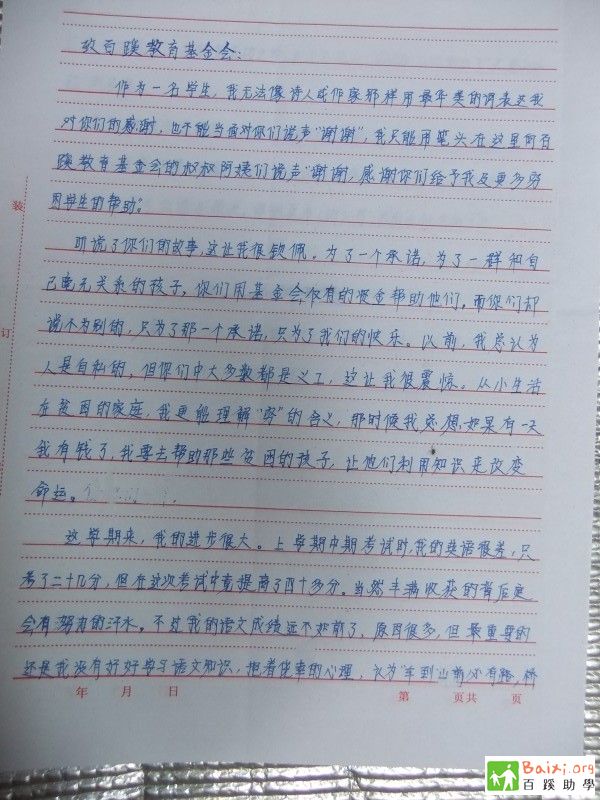 致百蹊教育基金会:
作为一名学生,我无法像诗人或作家那样用最华美的词表达我
对你们的感谢,也不能当面对你们说声“谢谢”,我只能用笔头在这里向百
蹊教育基金会的叔叔阿姨们说声“谢谢,感谢你们给予我及更多穷
困学生的帮助”。
听说了你们的故事,这让我很钦佩。为了一个承诺,为了一群和自
己毫无关系的孩子,你们用基金会仅有的资金帮助他们,而你们却
说不为别的,只为了那一个承诺,只为了我们的快乐。以前,我总认为
人是自私的,但你们中大多数都是义工,这让我很震惊。从小生活
在贫困的家庭,我更能理解“穷”的含义,那时候我总想,如果有一天
我有钱了,我要去帮助那些贫困的孩子,让他们利用知识来改变
命运。
这学期来,我的进步很大。上学期中期考试时,我的英语很差,只
考了二十几分,但在这次考试中竟提高了四十多分。当然丰满收获的背后更
会有努力的汗水。不过我的语文成绩远不如前了,原因很多,但最重要的
还是我没有好好学习语文知识,抱着侥幸的心理,认为“车到山前必有路,桥
年 月 日 第 页共 页
装
订
Baixi.org
百蹊助學